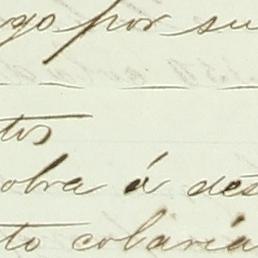 go por su
tos
obra á des
to cobaria